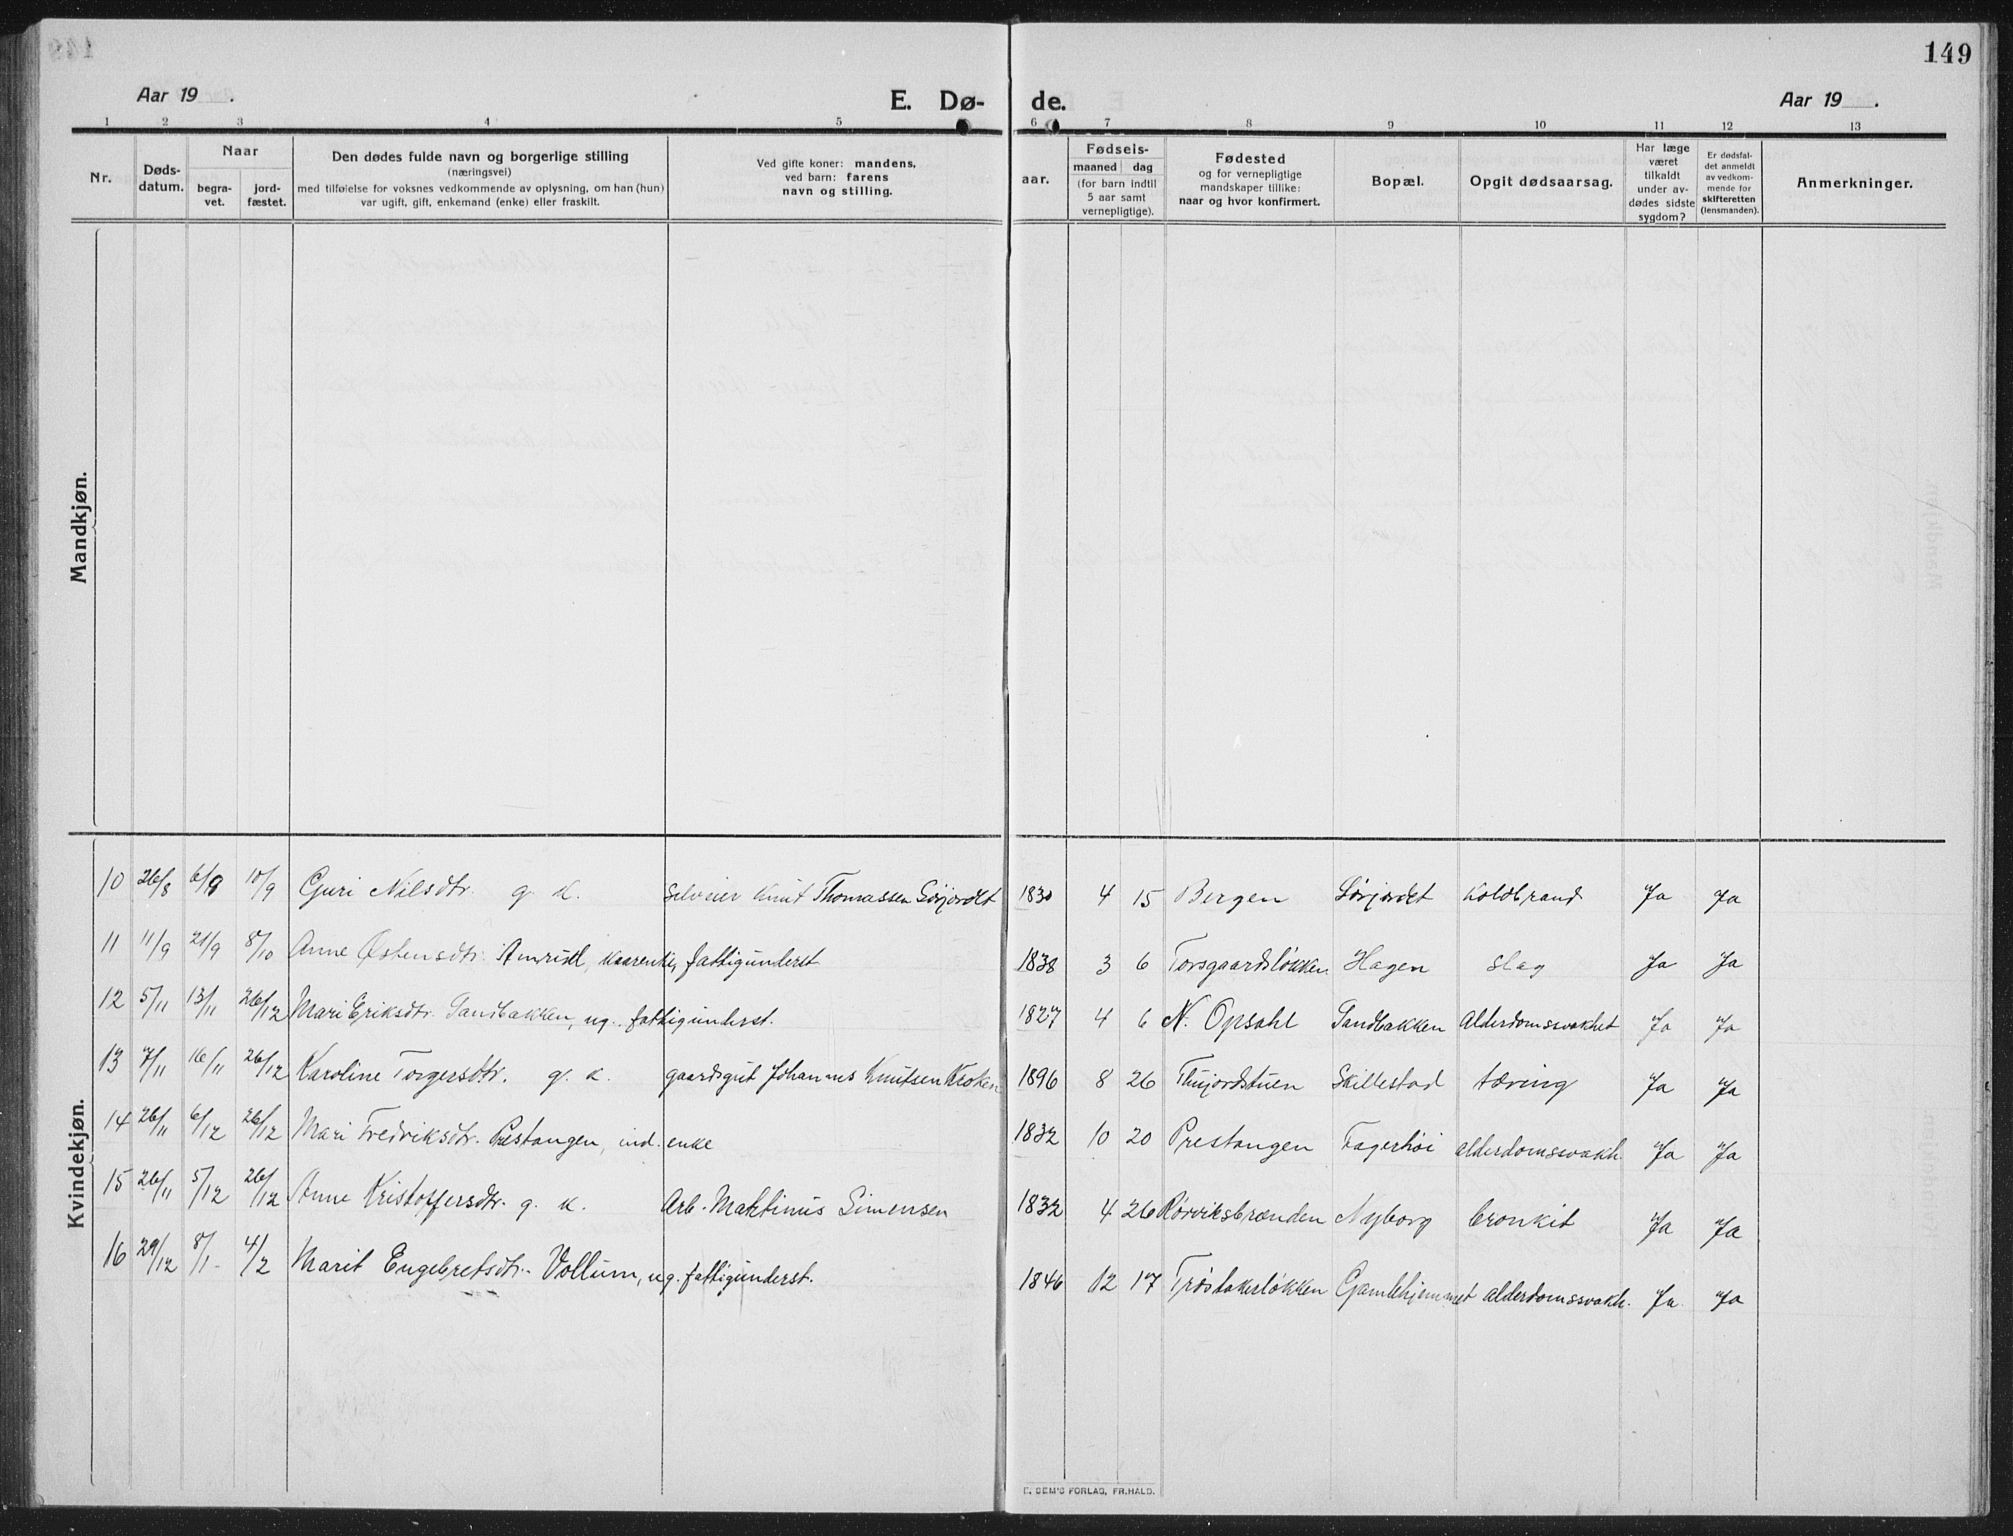 149
Aar 19 .
E. Dø-
de.
Aar 19 .
1 2 3 4 5 6 7 8 9 10 11 12 13
Nr.
Døds-
datum.
Naar
begra-
vet.
jord-
fæstet.
Den dødes fulde navn og borgerlige stilling
(næringsvei)
med tilføielse for voksnes vedkommende av oplysning, om han (hun)
var ugift, gift, enkemand (enke) eller fraskilt.
Ved gifte koner: mandens,
ved barn: farens
navn og stilling.
aar.
Fødsels-
maaned dag
(for barn indtil
5 aar samt
vernepligtige).
Fødested
og for vernepligtige
mandskaper tillike:
naar og hvor konfirmert.
Bopæl.
Opgit dødsaarsag.
Har læge
været
tilkaldt
under av-
dødes sidste
sygdom?
Er dødsfal-
det anmeldt
av vedkom-
mende for
skifteretten
(lensmanden).
Anmerkninger.
Mandkjøn.
Kvindekjøn.
10 26/8 6/9 10/9 Guri Nilsdtr. g. k. selveier Knut Thomassen Sørjordet 1830 4 15 Bergen Sørjordet Koldbrand Ja Ja
11 11/9 21/9 8/10 Anne Østensdtr. Amrud, kaarenke, fattigunderst 1838 3 6 Torsgaardsløkken Hagen slag Ja Ja
12 5/11 13/11 26/12 Mari Eriksdtr. Sandbakken, ug. fattigunderst. 1827 4 6 N. Opsahl Sandbakken Alderdomssvakhet Ja Ja
13 7/11 16/11 26/12 Karoline Torgersdtr. g. k. gaardsgut Johannes Knutsen Kroken 1896 8 26 Thujordstuen Skillestad tæring Ja Ja
14 26/11 6/12 26/12 Mari Fredriksdtr. Prestangen, ind. enke 1832 10 20 Prestangen Fagerhøi alderdomssvakh. Ja Ja
15 26/11 5/12 26/12 Anne Kristoffersdtr. g. k. Arb. Maktinus Simensen 1832 4 26 Rørviksbrænden Nyborg bronkit Ja Ja
16 29/12 8/1 4/2 Marit Engebretsdtr. Vollum, ug. fattigunderst. 1846 12 17 Trøstakerløkken Gamlehjemmet alderdomssvakh. Ja Ja
E. SEM'S FORLAG, FR.HALD.